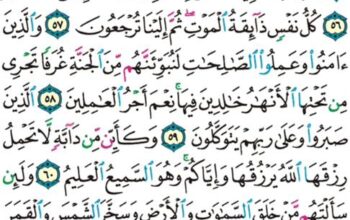 ﴿٥٦﴾ كُلُّ نَفْسٍ ذَآئِقَةُ ٱلْمَوْتِ ۖ ثُمَّ إِلَيْنَا تُرْجَعُونَ ﴿٥٧﴾ وَٱلَّذِينَ
ءَامَنُوا۟ وَعَمِلُوا۟ ٱلصَّـٰلِحَـٰتِ لَنُبَوِّئَنَّهُم مِّنَ ٱلْجَنَّةِ غُرَفًا تَجْرِى
مِن تَحْتِهَا ٱلْأَنْهَـٰرُ خَـٰلِدِينَ فِيهَا ۚ نِعْمَ أَجْرُ ٱلْعَـٰمِلِينَ ﴿٥٨﴾ ٱلَّذِينَ
صَبَرُوا۟ وَعَلَىٰ رَبِّهِمْ يَتَوَكَّلُونَ ﴿٥٩﴾ وَكَأَيِّن مِّن دَآبَّةٍ لَّا تَحْمِلُ
رِزْقَهَا ٱللَّهُ يَرْزُقُهَا وَإِيَّاكُمْ ۚ وَهُوَ ٱلسَّمِيعُ ٱلْعَلِيمُ ﴿٦٠﴾ وَلَئِن
سَأَلْتَهُم مَّنْ خَلَقَ ٱلسَّمَـٰوَٰتِ وَٱلْأَرْضَ وَسَخَّرَ ٱلشَّمْسَ وَٱلْقَمَرَ